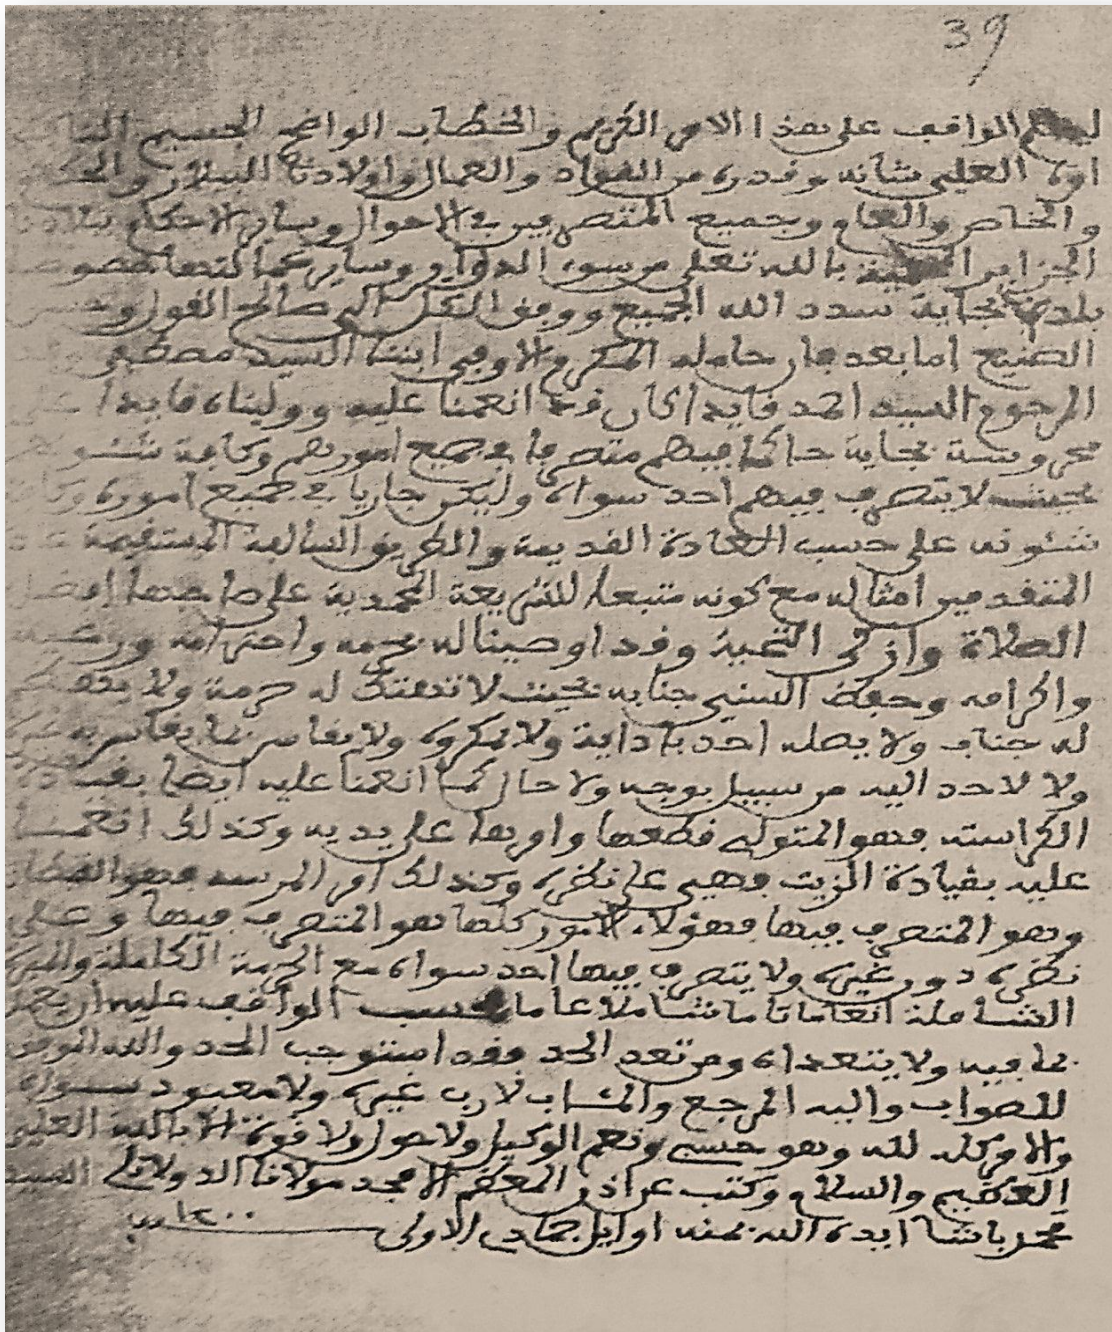 39
الواقف على هذا الامر الكريم والخطاب الواضح الجسيم
العلي شانه وقدره من القواد والعمال واولادنا البلار
والخاص والعام وجميع المتصرفين في الاحوال وساير الاحكام
الجزاير بالله تعلى من سوء الدواير وساير عمالتها
بلدة بجاية سدد الله الجميع ووفق الكل الى صالح القول
الصنيع اما بعد فان حامله المكرم الاوجي ابننا السيد مصطفى
المرحوم السيد احمد قايدا كان قد انعمنا عليه ووليناه قايدا
محروسة بجاية حاكما فيهم متصرفا في جميع امورهم وكافة
بحيث لا يتصرف فيهم احد سواه وليكن جاريا في جميع اموره
شئونه على حسب العادة القديمة والطريق السالفة المستقيمة
المتقدمين امثاله مع كونه متبعا للشريعة المحمدية على صاحبها افضل
الصلاة وازكى التحية وقد اوصينا له واحترامه
واكرامه وحفظ السني جنابه بحيث لا تهتك له حرمة ولا
له جناب ولا يصله احد باذاية ولا مكروه ولا يقاس بما يقاس به
ولا لاحد اليه من سبيل بوجه ولا حال كما انعمنا عليه ايضا
الكراسته فهو المتولي قطعها وامرها على يديه وكذلك انعمنا
عليه بقيادة الزيت فهي على نظره وكذلك امر المرسه فهو
وهو المتصرف فيها فهؤلاء الامور كلها هو المتصرف فيها وعلى
نظره دون غيره ولا يتصرف فيها احد سواه مع الحرمة الكاملة
الشاملة انعاما تاما شاملا عاما الواقف عليه ان يعمل
بما فيه ولا يتعداه ومن تعد الحد فقد استوجب الحد والله الموفق
للصواب واليه المرجع والمئاب لا رب غيره ولا معبود سواه
والامر كله لله وهو حسبي ونعم الوكيل ولا حول ولا قوة الا بالله العلي
العظيم والسلام وكتب عن اذن المعظم الامجد مولانا الدولاتلي السيد
محمد باشا ايده الله بمنه اوايل جمادى الاولى سنة ١٢٠٠